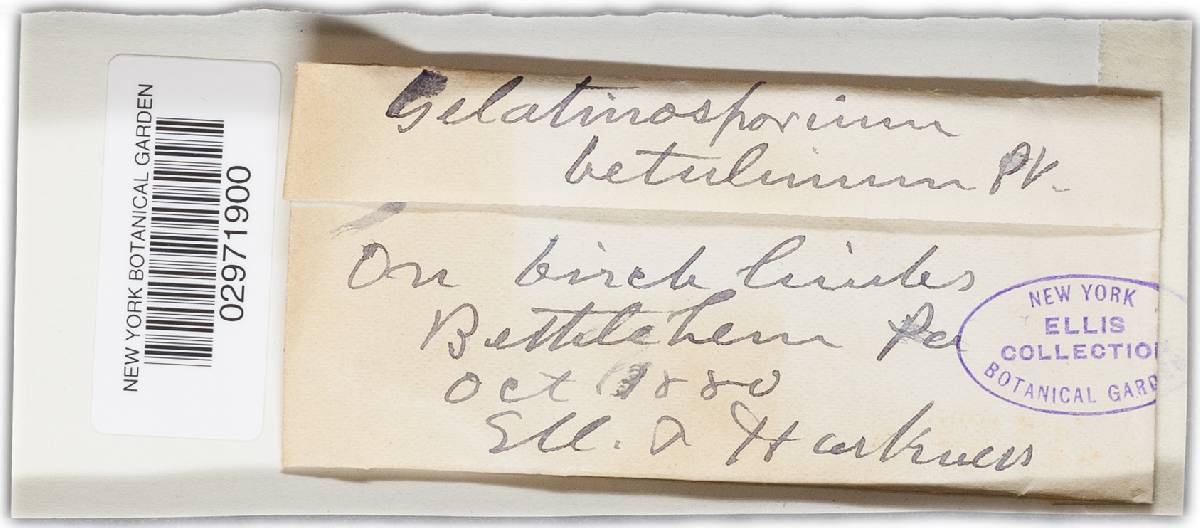 NEW YORK BOTANICAL GARDEN
02971900
Gelatinosporium
betulinum Pk.
On birch limbs
Bethlehem Pa
Oct 1880
Ell. & Harkness
NEW YORK
ELLIS
COLLECTION
BOTANICAL GARDEN